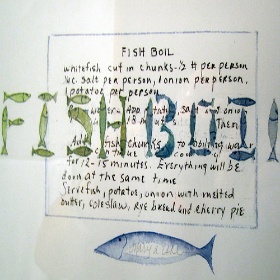 FISH BOIL
whitefish cut in chunks-½ # per person
salt per person, 1 onion per person,
1 potato per person
water- Add
FISH BOIL
Then
Add fish chunks to boiling water
for 12-15 minutes. Everything will be
done at the same time
Serve fish, potato, onion with melted
butter, coleslaw, Rye bread and cherry pie